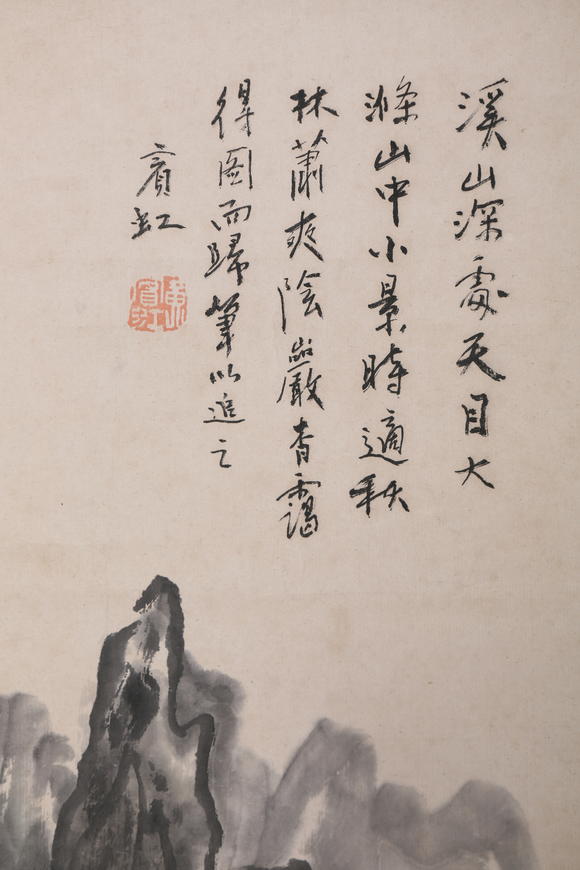 溪山深處天目大
滌山中小景時適秋
林蕭爽陰巖杳靄
得圖而歸筆以追之
賓虹
黃賓虹